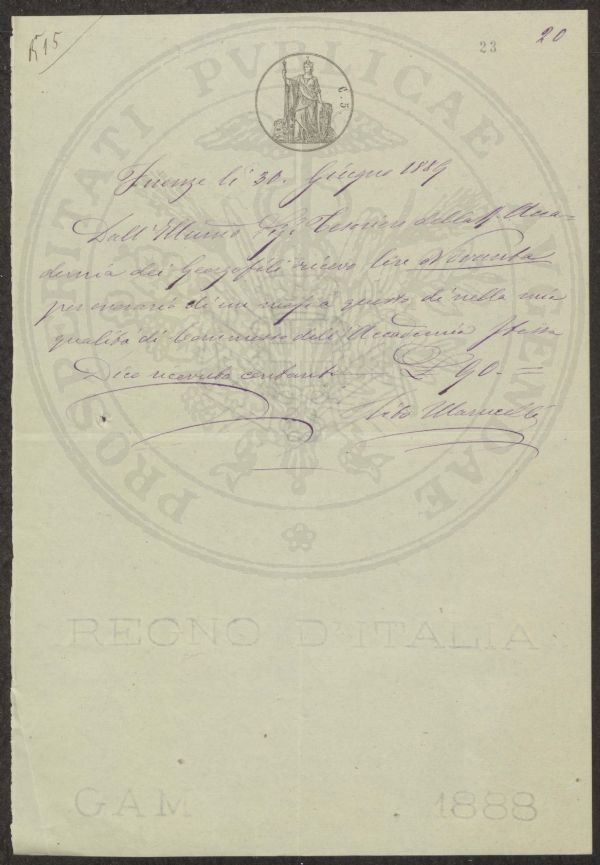 R 15
23
20
C. 5.
PROSPERITATI PVBLICAE AVGENDAE
Firenze li 30. Giugno 1889
Dall' Illmo Sigr Tesoriere della R. Acca-
demia dei Georgofili ricevo lire Novanta
per onorario di un mese a questo dì nella mia
qualità di Commesso dell' Accademia Stessa
Dico ricevuto contanti — £ 90. =
REGNO D'ITALIA
GAM 1888